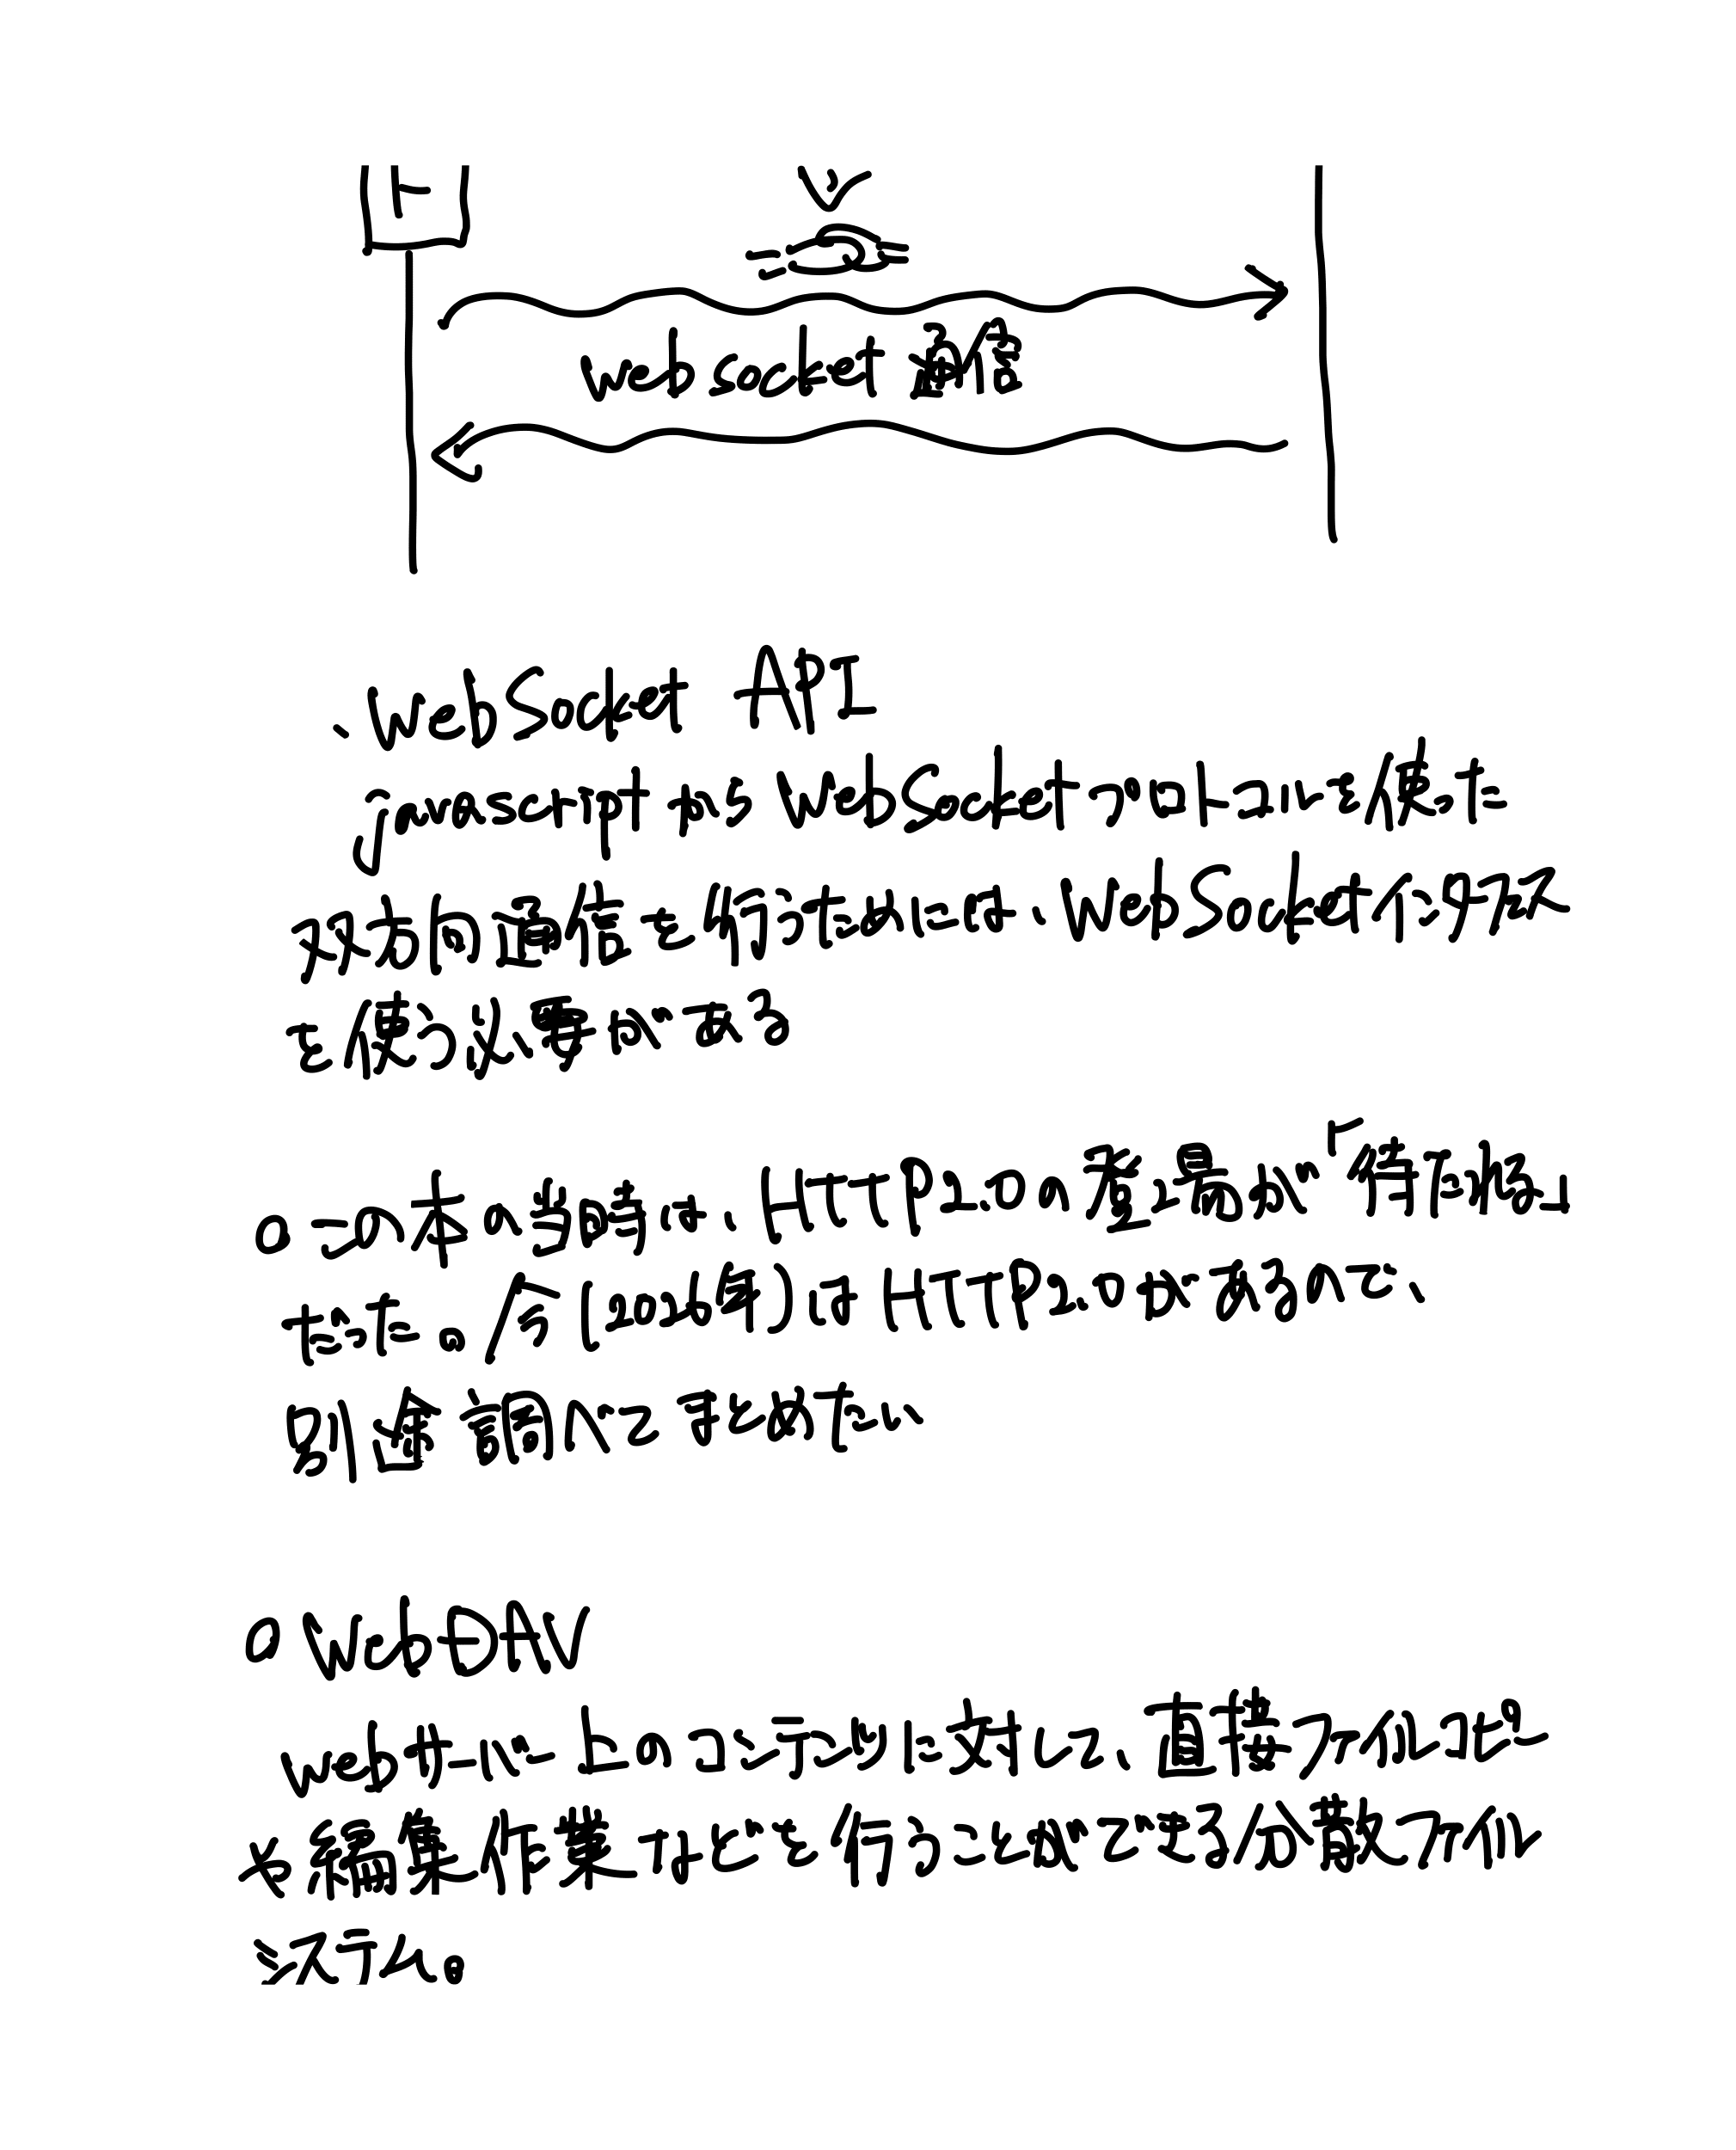 ト
websocket 通信
、WebSocket API
javascriptからWebSocketプロトコルを使った
双方向通信を行うためには、WebSocketインタフェース
を使う必要がある
○この本の当時は、HTTP2.0の発展が「待ち望まし
れた。今(2026年)はHTTP2.0があるので、
別途調べてまとめたい
○WebDAV
webサーバ上のコンテンツに対して、直接ファイルコピー
や編集作業などを行うことができる分散ファイル
システム。